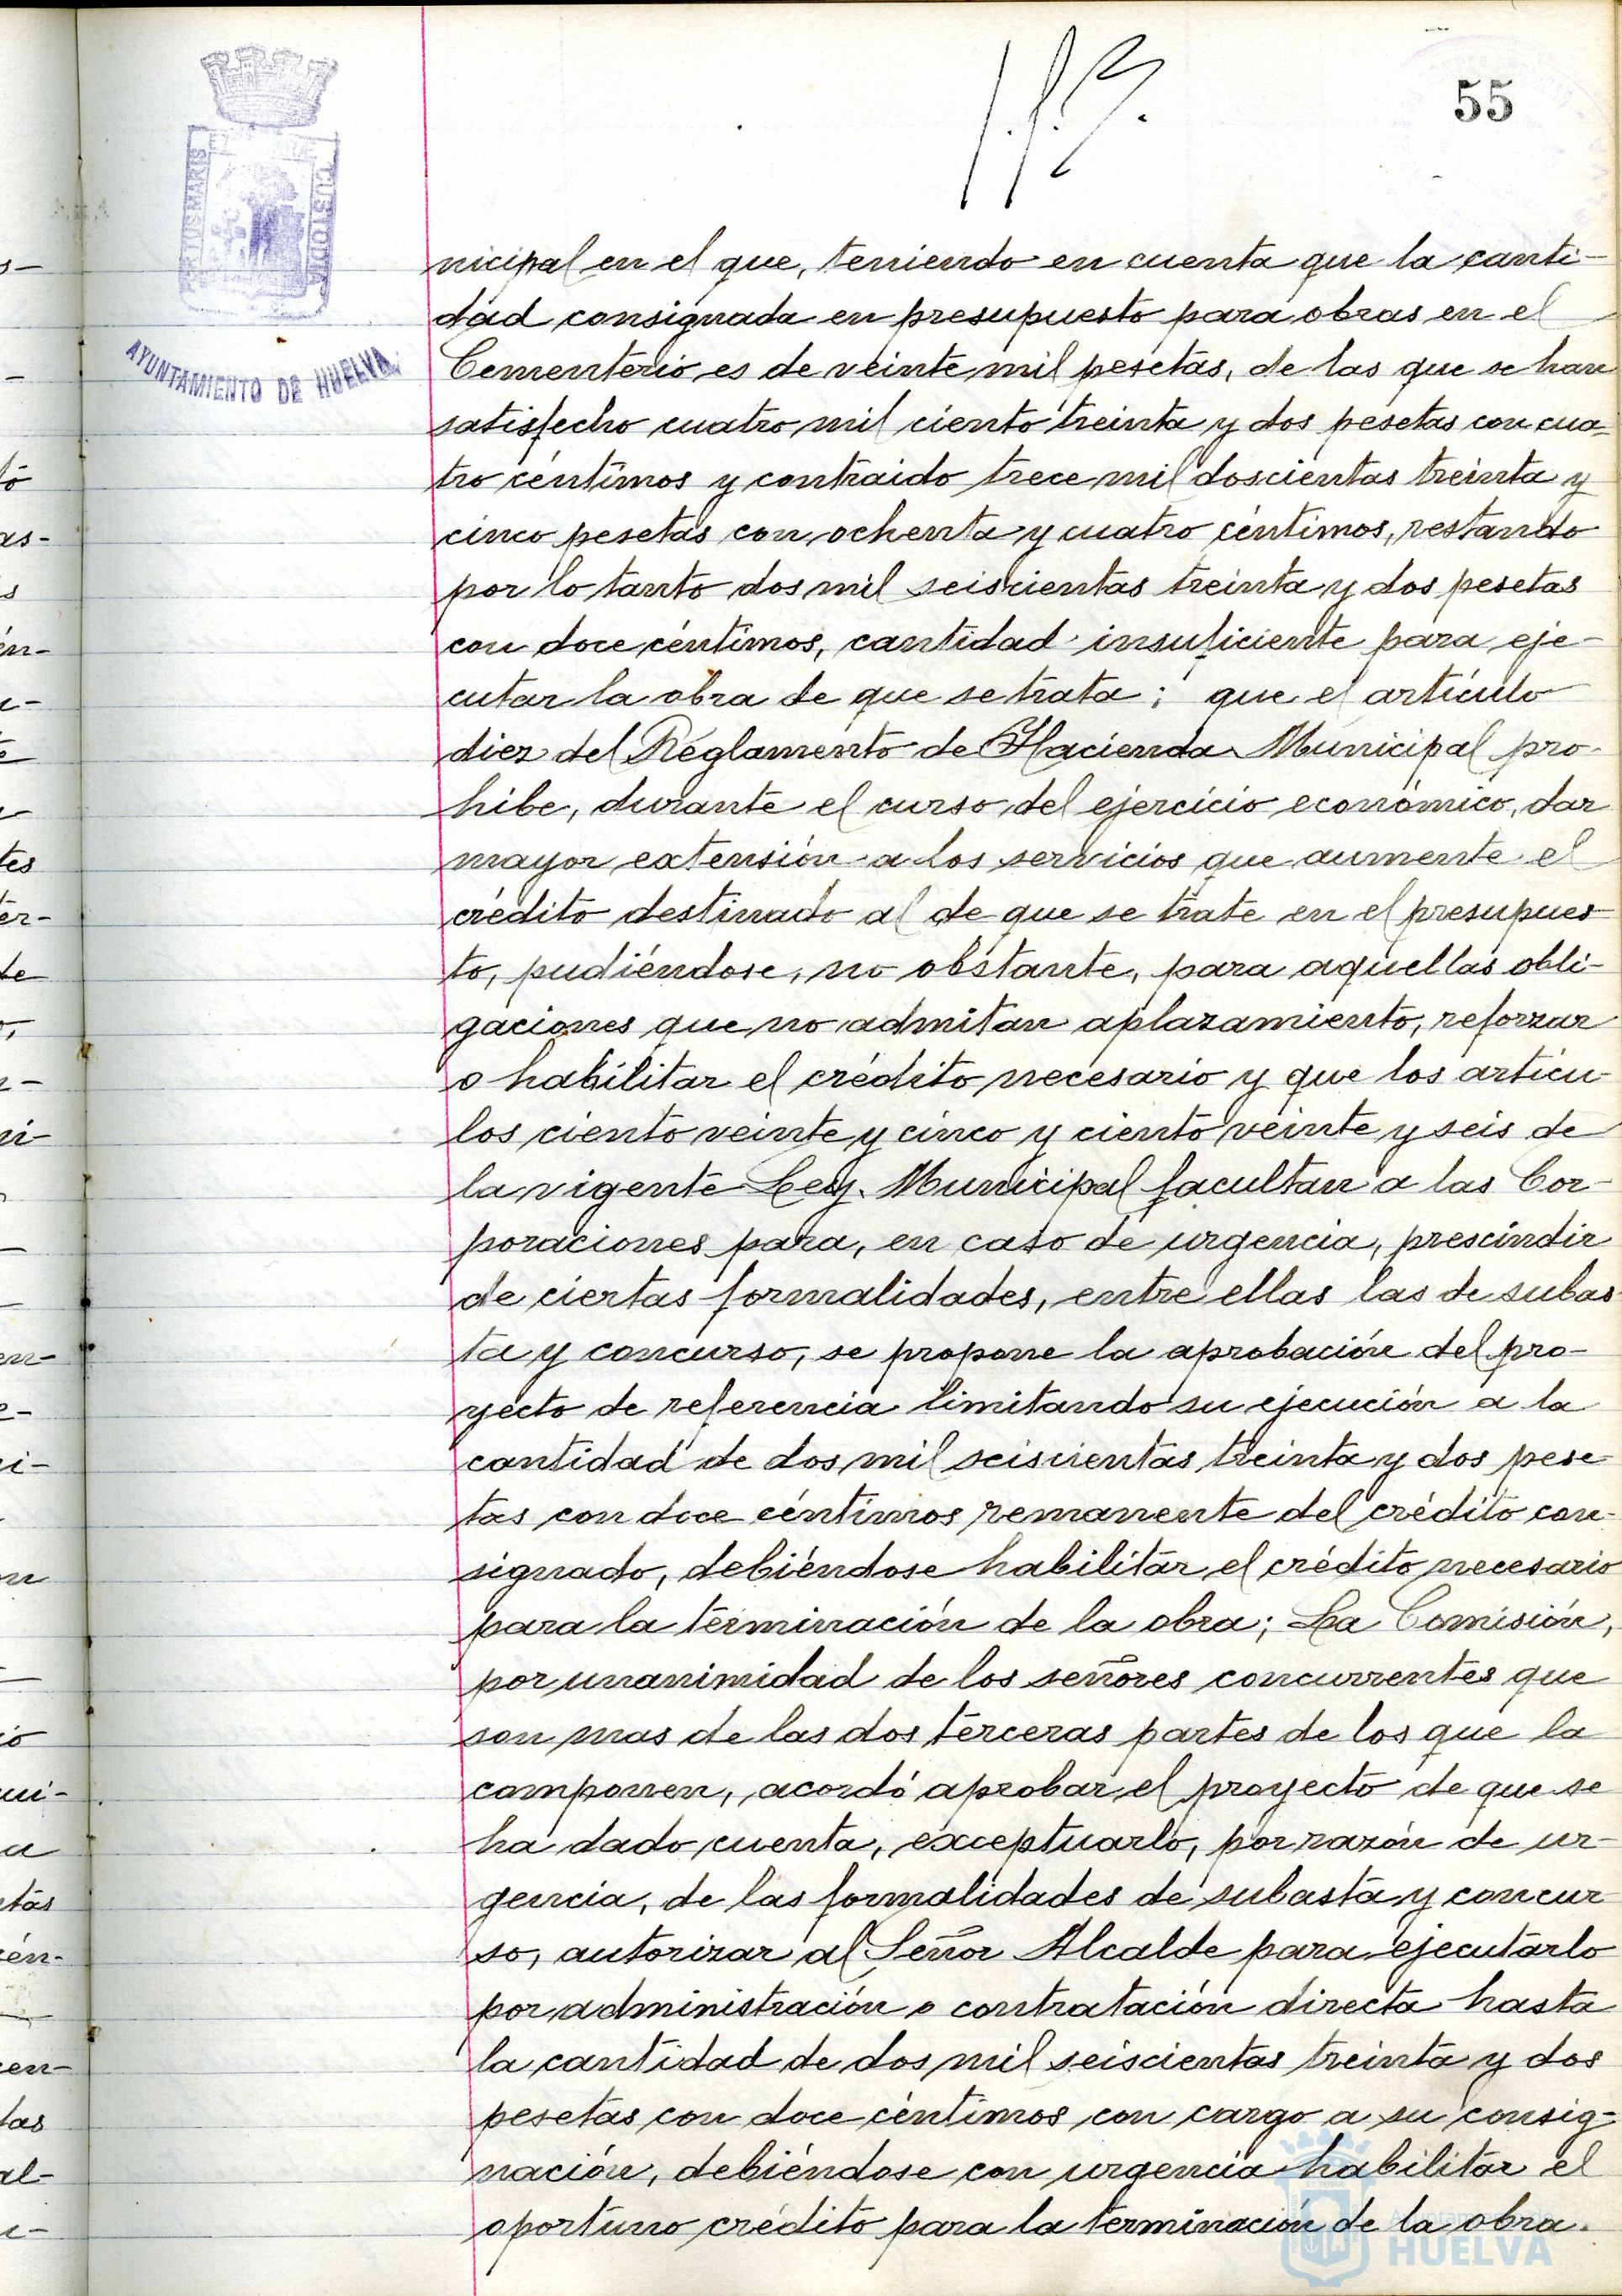 55
PORTUS MARIS ET TERRAE CUSTODIA
AYUNTAMIENTO DE HUELVA
nicipal en el que, teniendo en cuenta que la canti-
dad consignada en presupuesto para obras en el
Cementerio es de veinte mil pesetas, de las que se han
satisfecho cuatro mil ciento treinta y dos pesetas con cua-
tro céntimos y contraido trece mil doscientas treinta y
cinco pesetas con ochenta y cuatro céntimos, restando
por lo tanto dos mil seiscientas treinta y dos pesetas
con doce céntimos, cantidad insuficiente para eje-
cutar la obra de que se trata; que el artículo
diez del Reglamento de Hacienda Municipal pro-
hibe, durante el curso del ejercicio económico, dar
mayor extensión a los servicios que aumente el
crédito destinado al de que se trate en el presupues-
to, pudiéndose, no obstante, para aquellas obli-
gaciones que no admitan aplazamiento, reforzar
o habilitar el crédito necesario y que los artícu-
los ciento veinte y cinco y ciento veinte y seis de
la vigente Ley Municipal facultan a las Cor-
poraciones para, en caso de urgencia, prescindir
de ciertas formalidades, entre ellas las de subas
ta y concurso, se propone la aprobación del pro-
yecto de referencia limitando su ejecución a la
cantidad de dos mil seiscientas treinta y dos pese-
tas con doce céntimos remanente del crédito con-
signado, debiéndose habilitar el crédito necesario
para la terminación de la obra; La Comisión,
por unanimidad de los señores concurrentes que
son mas de las dos terceras partes de los que la
componen, acordó aprobar el proyecto de que se
ha dado cuenta, exceptuarlo, por razón de ur-
gencia, de las formalidades de subasta y concur
so, autorizar al Señor Alcalde para ejecutarlo
por administración o contratación directa hasta
la cantidad de dos mil seiscientas treinta y dos
pesetas con doce céntimos con cargo a su consig-
nación, debiéndose con urgencia habilitar el
oportuno crédito para la terminación de la obra.
Ayuntamiento de
HUELVA